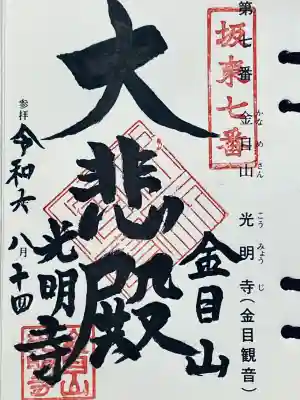 第七番 金目山 光明寺(金目観音)
かなめさん こうみょうじ
坂東七番
金目山
大悲殿
光明寺
参拝 令和六 八月十四